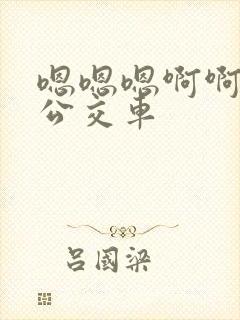 嗯嗯嗯啊啊
公交車
吕國梁